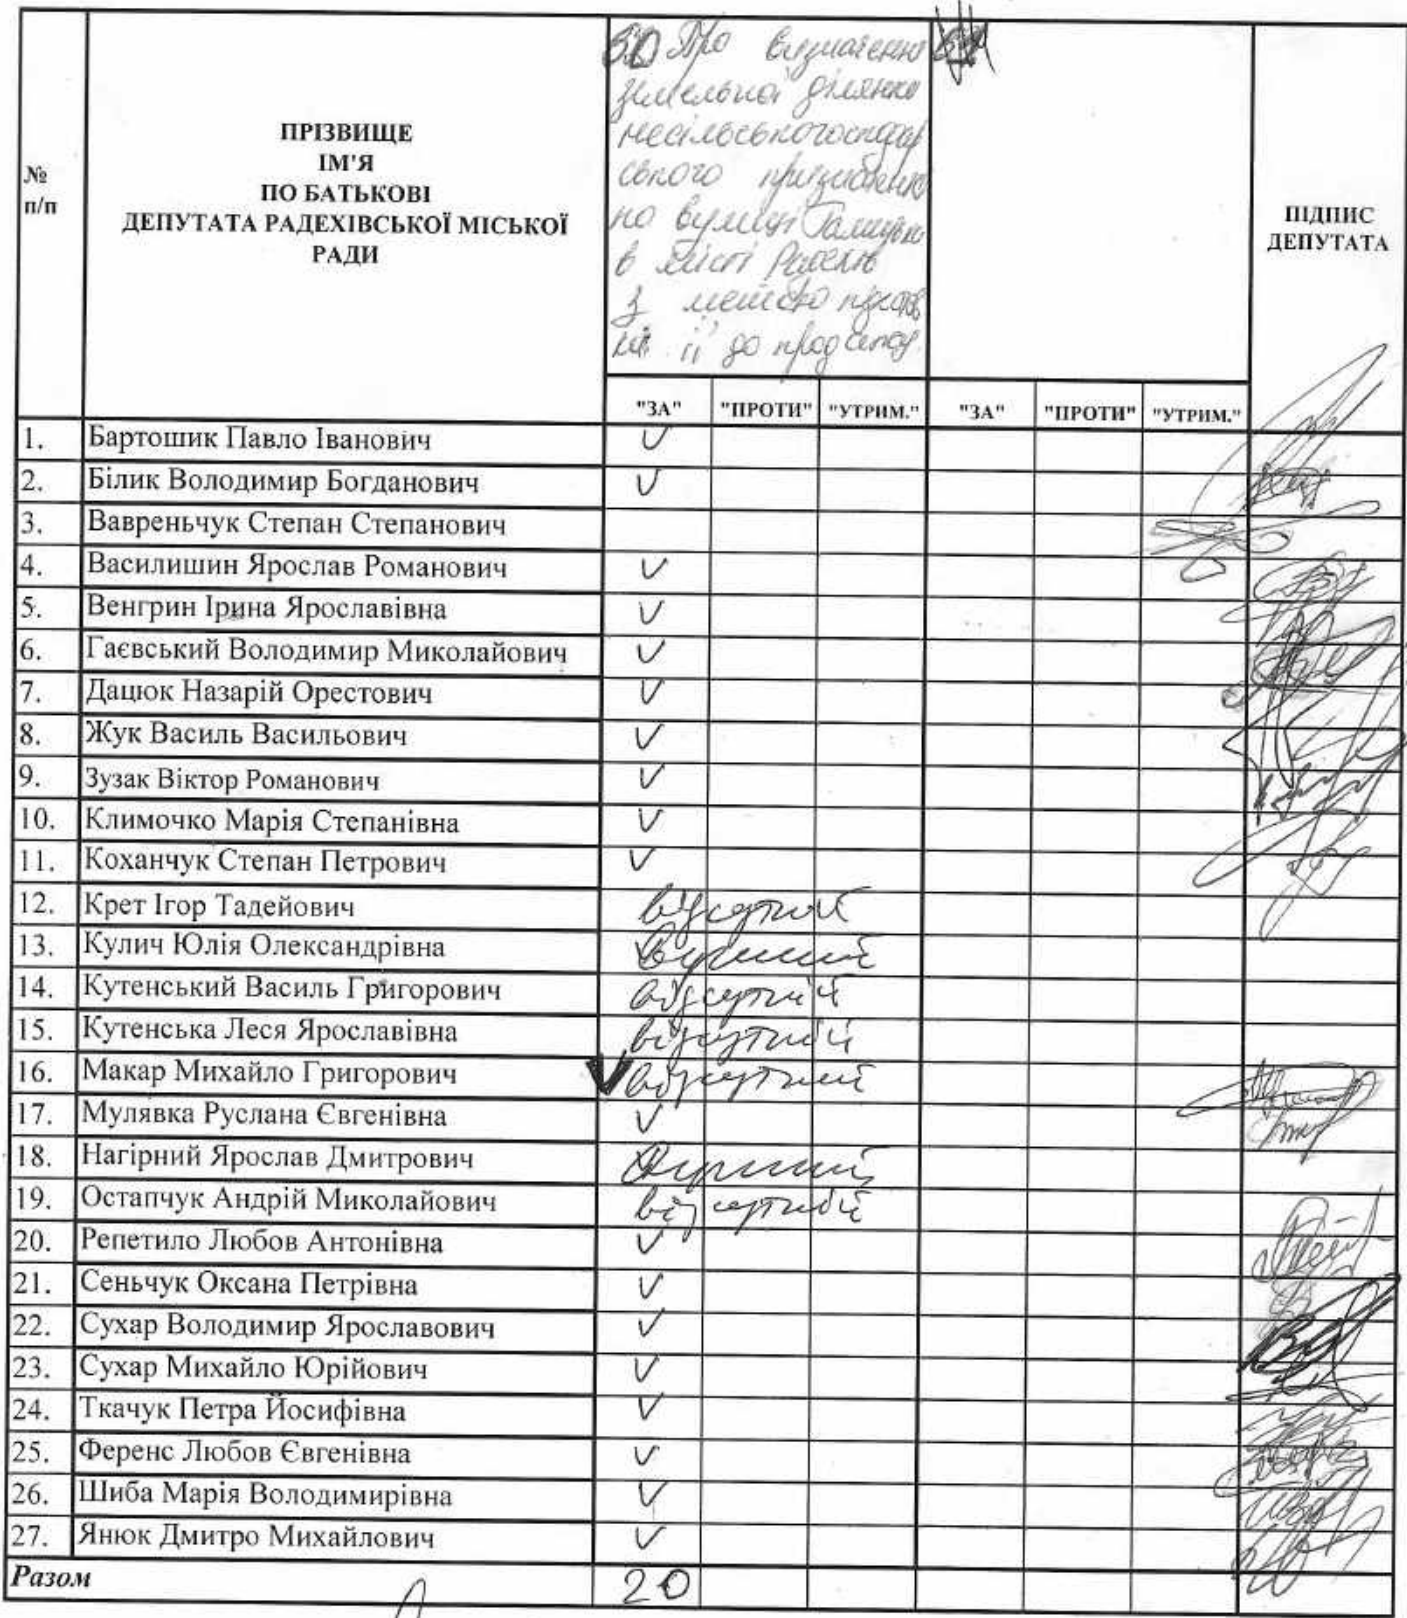 №
п/п
ПРІЗВИЩЕ
ІМ'Я
ПО БАТЬКОВІ
ДЕПУТАТА РАДЕХІВСЬКОЇ МІСЬКОЇ
РАДИ
50 Про визначення
земельної ділянки
несільськогосподар
ського призначення
на вулиці
в місті Радехів
з метою
її до
ПІДПИС
ДЕПУТАТА
"ЗА" "ПРОТИ" "УТРИМ." "ЗА" "ПРОТИ" "УТРИМ."
1. Бартошик Павло Іванович V
2. Білик Володимир Богданович V
3. Вавреньчук Степан Степанович
4. Василишин Ярослав Романович V
5. Венгрин Ірина Ярославівна V
6. Гаєвський Володимир Миколайович V
7. Дацюк Назарій Орестович V
8. Жук Василь Васильович V
9. Зузак Віктор Романович V
10. Климочко Марія Степанівна V
11. Коханчук Степан Петрович V
12. Крет Ігор Тадейович відсутній
13. Кулич Юлія Олександрівна
14. Кутенський Василь Григорович відсутній
15. Кутенська Леся Ярославівна відсутній
16. Макар Михайло Григорович V відсутній
17. Мулявка Руслана Євгенівна V
18. Нагірний Ярослав Дмитрович
19. Остапчук Андрій Миколайович відсутній
20. Репетило Любов Антонівна V
21. Сеньчук Оксана Петрівна V
22. Сухар Володимир Ярославович V
23. Сухар Михайло Юрійович V
24. Ткачук Петра Йосифівна V
25. Ференс Любов Євгенівна V
26. Шиба Марія Володимирівна V
27. Янюк Дмитро Михайлович V
Разом 20